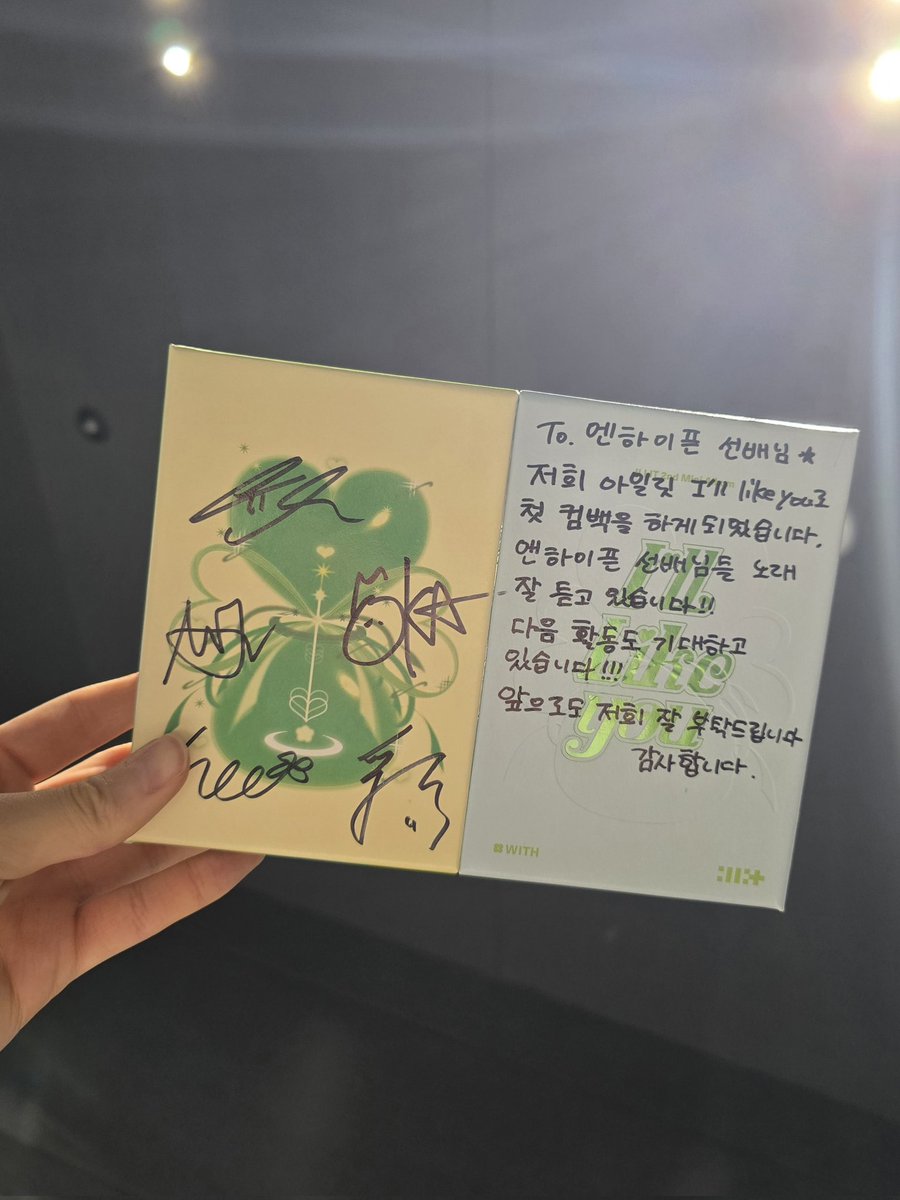 To. 엔하이픈 선배님 ★
저희 아일릿 I'll like you로
첫 컴백을 하게되었습니다.
엔하이픈 선배님들 노래
잘 듣고 있습니다!!
다음 활동도 기대하고
있습니다!!!
앞으로도 저희 잘 부탁드립니다
감사합니다.
I'll
like
you
WITH